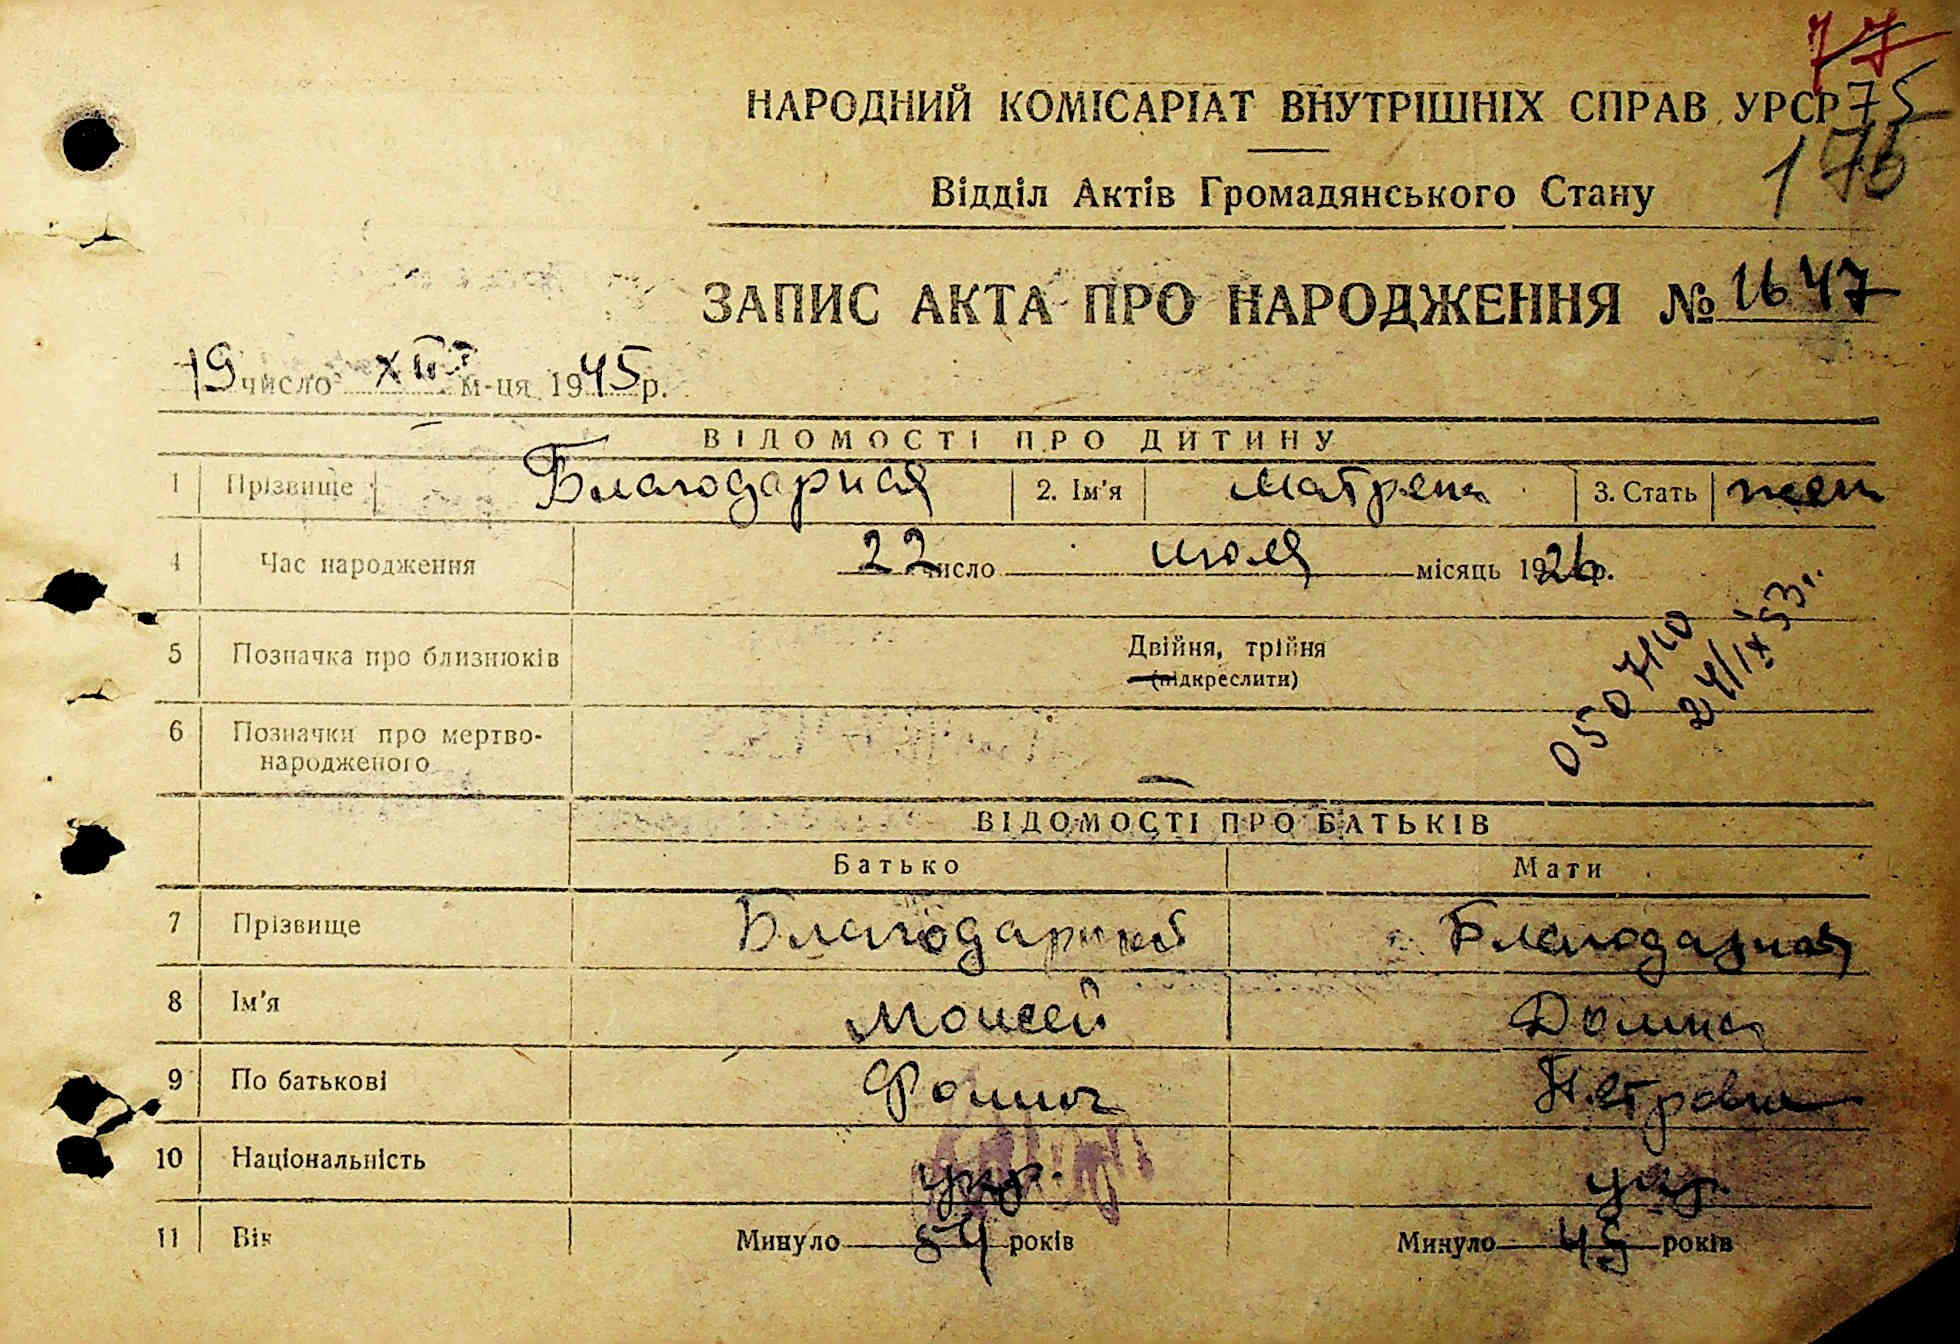 77
НАРОДНИЙ КОМІСАРІАТ ВНУТРІШНІХ СПРАВ УРСР 75
Відділ Актів Громадянського Стану 176
ЗАПИС АКТА ПРО НАРОДЖЕННЯ № 1647
19 число XII м-ця 1945 р.
ВІДОМОСТІ ПРО ДИТИНУ
1 Прізвище Благодарная 2. Ім'я Матрена 3. Стать жен
4 Час народження 22 число июля місяць 1926 р.
5 Позначка про близнюків Двійня, трійня
(підкреслити)
0507110
24/IX 53 г.
6 Позначки про мертво-
народженого —
ВІДОМОСТІ ПРО БАТЬКІВ
Батько Мати
7 Прізвище Благодарный Благодарная
8 Ім'я Моисей Домна
9 По батькові Фомич Петровна
10 Національність укр. укр.
11 Вік Минуло 54 років Минуло 45 років